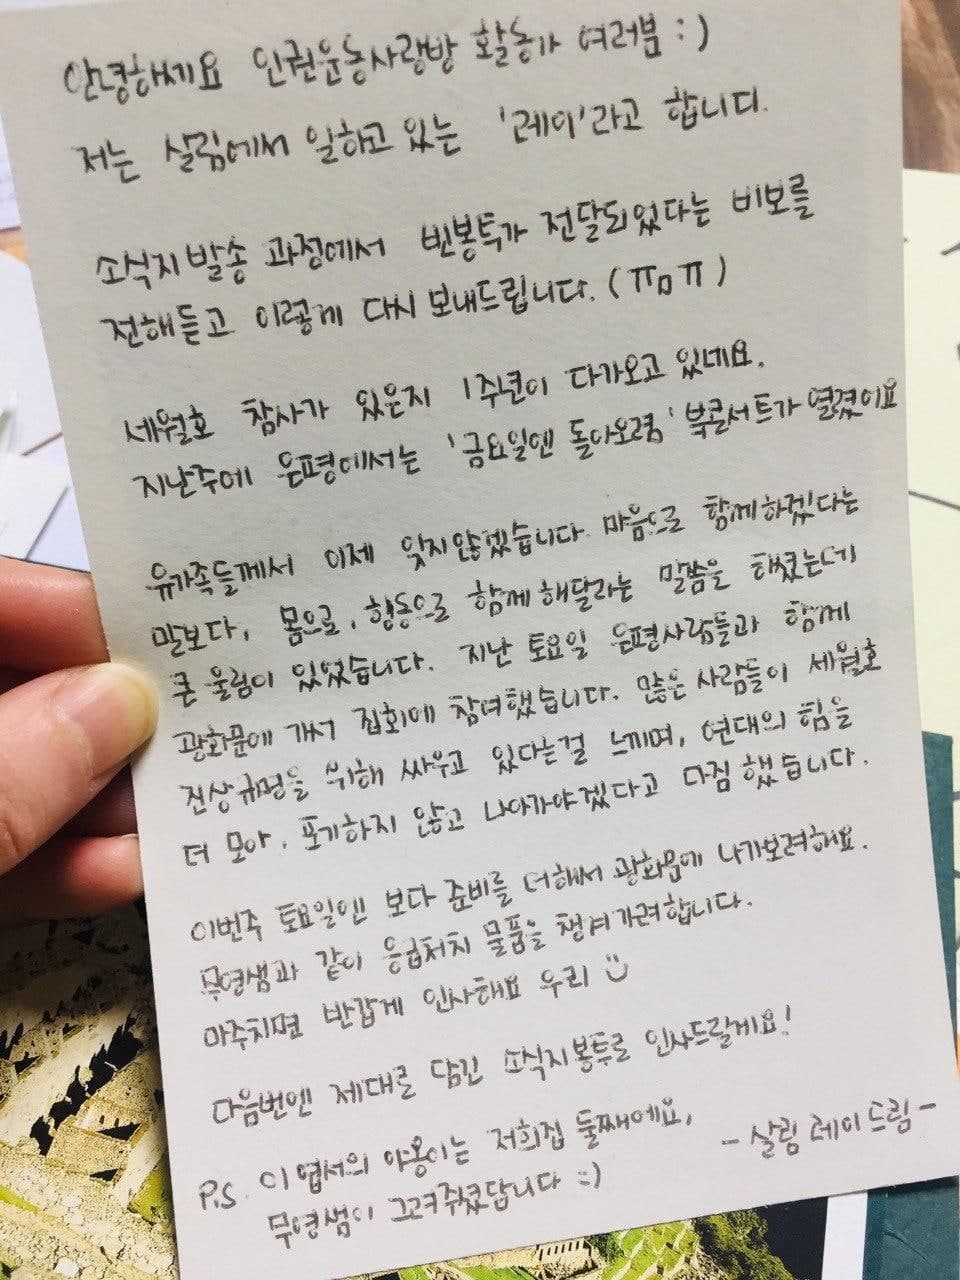 안녕하세요 인권운동사랑방 활동가 여러분 :)
저는 살림에서 일하고 있는 '레이'라고 합니다.
소식지 발송 과정에서 빈봉투가 전달되었다는 비보를
전해듣고 이렇게 다시 보내드립니다. (ㅠㅁㅠ)
세월호 참사가 있은지 1주년이 다가오고 있네요.
지난주에 은평에서는 '금요일엔 돌아오렴' 북콘서트가 열렸어요
유가족들께서 이제 잊지않겠습니다. 마음으로 함께하겠다는
말보다, 몸으로, 행동으로 함께 해달라는 말씀을 하셨는데
큰 울림이 있었습니다. 지난 토요일 은평사람들과 함께
광화문에 가서 집회에 참여했습니다. 많은 사람들이 세월호
진상규명을 위해 싸우고 있다는걸 느끼며, 연대의 힘을
더 모아, 포기하지 않고 나아가야겠다고 다짐했습니다.
이번주 토요일엔 보다 준비를 더해서 광화문에 나가보려해요.
무영샘과 같이 응급처치 물품을 챙겨가려합니다.
마주치면 반갑게 인사해요 우리
다음번엔 제대로 담긴 소식지봉투로 인사드릴게요!
- 살림 레이 드림 -
P.S 이 엽서의 야옹이는 저희집 둘째예요,
무영샘이 그려주셨답니다 :)